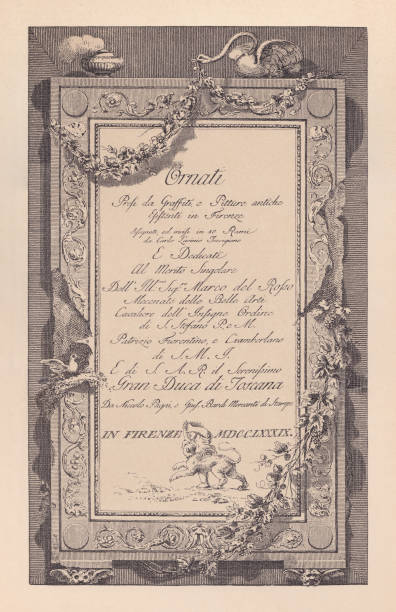 Ornati
Presi da Graffiti, e Pitture antiche
Esistenti in Firenze
Disegnati, ed incisi in 40 Rami
da Carlo Lasinio Trevigiano
E Dedicati
Al Merito Singolare
Dell' Ill.mo Sig.r Marco del Rosso
Mecenate delle Belle Arti
Cavaliere dell' Insigne Ordine
di S. Stefano P. e M.
Patrizio Fiorentino, e Ciamberlano
di S. M. I.
E di S. A. R. il Serenissimo
Gran-Duca di Toscana
Da Niccolo Pagni, e Gius. Bardi Mercanti di Stampe
IN FIRENZE MDCCLXXXIX.